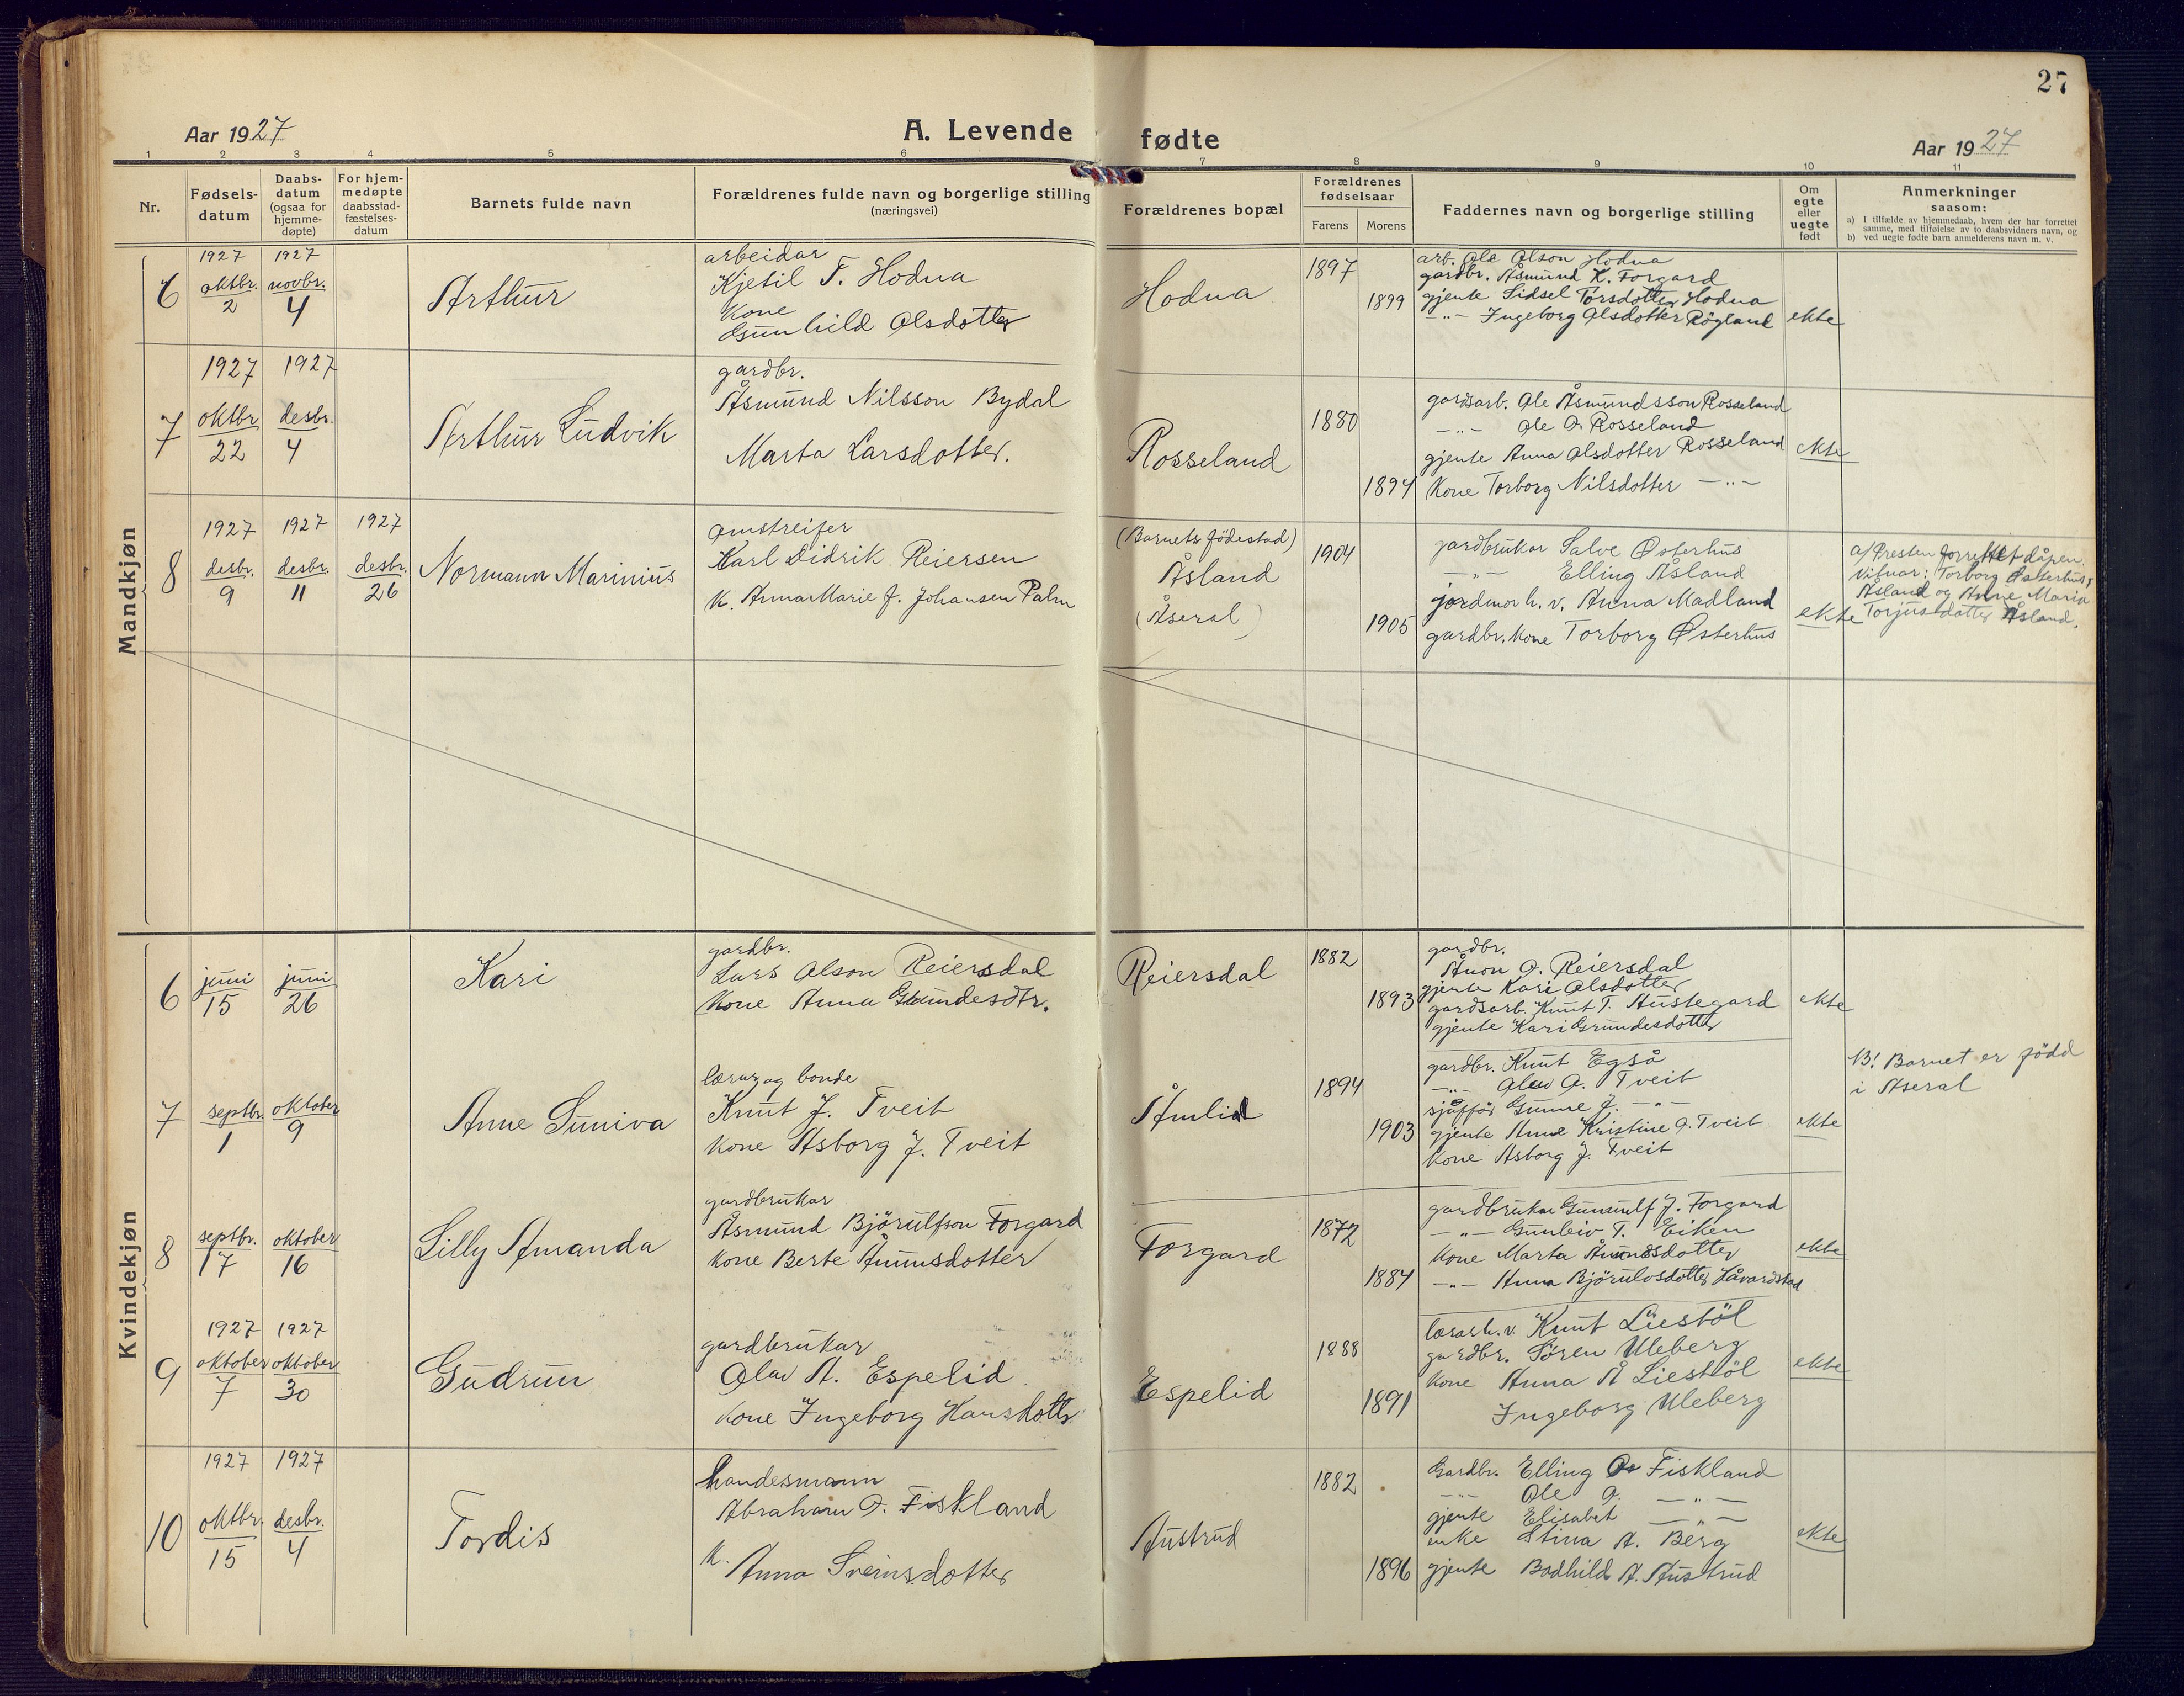 27
Aar 1927
A. Levende fødte
Aar 1927
1 2 3 4 5 6 7 8 9 10 11
Nr.
Fødsels-
datum
Daabs-
datum
(ogsaa for
hjemme-
døpte)
For hjem-
medøpte
daabsstad-
fæstelses-
datum
Barnets fulde navn
Forældrenes fulde navn og borgerlige stilling
(næringsvei)
Forældrenes bopæl
Forældrenes
fødselsaar
Farens Morens
Faddernes navn og borgerlige stilling
Om
egte
eller
uegte
født
Anmerkninger
saasom:
a) I tilfælde av hjemmedaab, hvem der har forrettet
samme, med tilføielse av to daabsvidners navn, og
b) ved uegte fødte barn anmelderens navn m. v.
Mandkjøn
6
1927
oktbr.
2
1927
novbr.
4
Arthur
arbeidar
Kjetil T. Hodna
Kone
Gunhild Olsdotter
Hodna
1897
1899
arb. Ole Olson Hodna
gardbr. Åsmund K. Forgard
gjente Sidsel Torsdotter Hodna
-"- Ingeborg Olsdotter Røgland
ekte
7
1927
oktbr.
22
1927
desbr.
4
Arthur Ludvik
gardbr.
Åsmund Nilsson Bydal
Marta Larsdotter.
Rosseland
1880
1894
gardsarb. Ole Åsmundsson Rosseland
-"- Ole O. Rosseland
gjente Anna Olsdotter Rosseland
Kone Torborg Nilsdotter -"-
ekte
8
1927
desbr.
9
1927
desbr.
11
1927
desbr.
26
Normann Marinius
omstreifer
Karl Didrik Reiersen
K. Anna Marie J. Johansen Palm
(Barnets födestad)
Åsland
(Åseral)
1904
1905
gardbrukar Salve Østerhus
-"- Elling Åsland
jordmor h. v. Anna Madland
gardbr. kone Torborg Østerhus
ekte
a/ Presten forrettet dåpen.
Vitnar: Torborg Østerhus,
Åsland og Anne Maria
Torjusdotter Åsland.
Kvindekjøn
6
juni
15
juni
26
Kari
gardbr.
Lars Olson Reiersdal
Kone Anna Gundesdtr.
Reiersdal
1882
1893
gardbr.
Ånon O. Reiersdal
gjente Kari Olsdotter
gardsarb. Knut T. Austegard
gjente Kari Grundesdotter
ekte
7
septbr.
1
oktober
9
Anne Suniva
lærar og bonde
Knut J. Tveit
Kone Åsborg J. Tveit
Åmlid
1894
1903
gardbr. Knut Egså
-"- Olav O. Tveit
sjåffør Gunne J. -"-
gjente Anne Kristine O. Tveit
Kone Åsborg J. Tveit
ekte
NB! Barnet er född
i Åseral
8
septbr.
17
oktober
16
Lilly Amanda
gardbrukar
Åsmund Björulfson Forgard
Kone Berte Ånunsdotter
Forgard
1872
1884
gardbrukar Gunnulf J. Forgard
-"- Gunleiv T. Eiken
Kone Marta Åsmundsdotter
-"- Anna Björulvsdotter Håvardstad
ekte
9
1927
oktober
7
1927
oktober
30
Gudrun
gardbrukar
Olav A. Espelid
Kone Ingeborg Hansdottr
Espelid
1888
1891
lærar h. v. Knut Liestöl
gardbr. Søren Uleberg
Kone Anna Å Liestöl
Ingeborg Uleberg
ekte
10
1927
oktbr.
15
1927
desbr.
4
Tordis
handesmann
Abraham O. Fiskland
K.
Anna Sveinsdotter
Austrud
1882
1896
Gardbr. Elling O. Fiskland
-"- Ole O. -"-
gjente Elisabet -"-
enke Stina A. Berg
gjente Bodhild A. Austrud
ekte